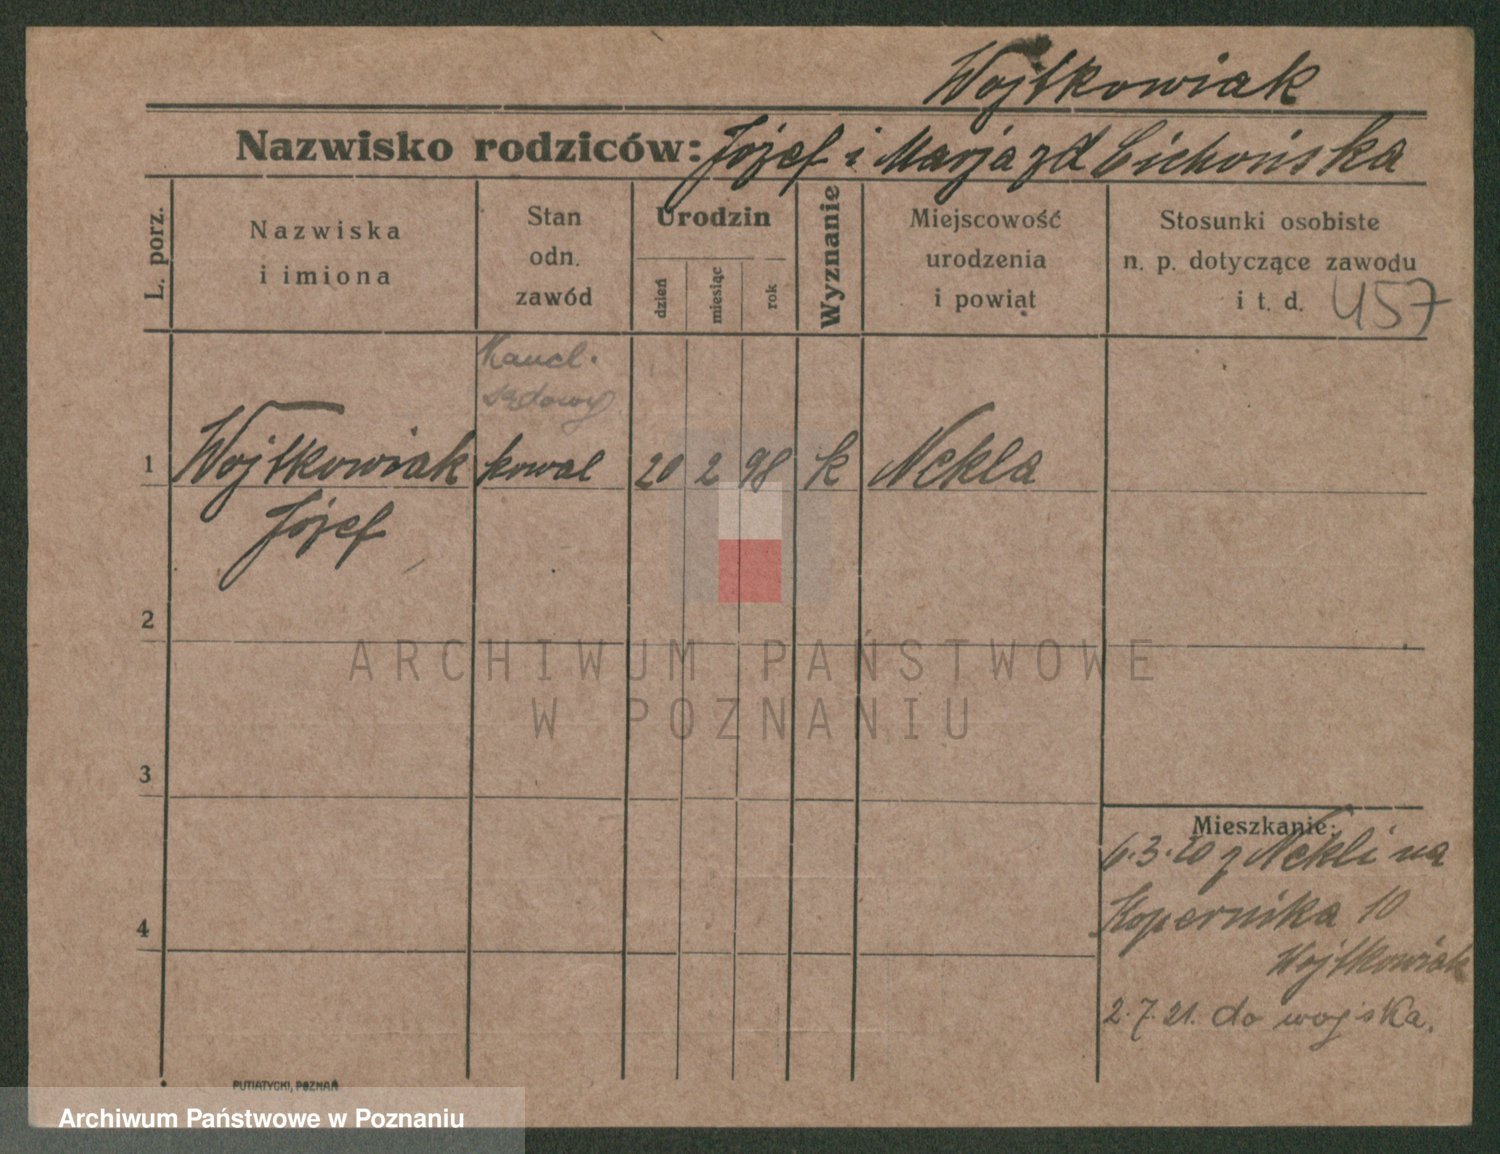 Wojtkowiak
Nazwisko rodziców: Józef i Marja zd Cichońska
L. porz.
Nazwiska
i imiona
Stan
odn.
zawód
Urodzin
dzień
miesiąc
rok
Wyznanie
Miejscowość
urodzenia
i powiat
Stosunki osobiste
n. p. dotyczące zawodu
i t. d. 457
Kancl.
sądowy
1 Wojtkowiak kowal 20 2 98 k Nekla
Józef
2
ARCHIWUM PAŃSTWOWE
W POZNANIU
3
Mieszkanie:
6.3.20 z Nekli na
4
Kopernika 10
Wojtkowiak
2.7.21. do wojska.
PUTIATYCKI, POZNAŃ
Archiwum Państwowe w Poznaniu